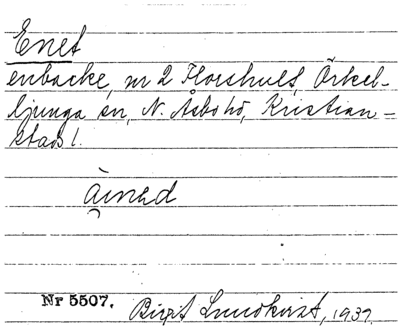 Enet
enbacke, nr 2 Florshult, Örkel-
ljunga sn, N. Åsbo hd, Kristian-
stads l.
Nr 5507. Birgit Lundkvist, 1937.